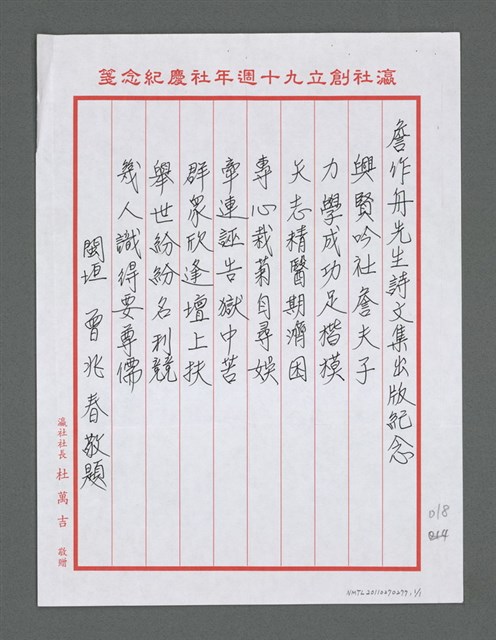 瀛社創立九十週年社慶紀念箋
詹作舟先生詩文集出版紀念
興賢吟社詹夫子
力學成功足楷模
矢志精醫期濟困
專心栽菊自尋娛
牽連誣告獄中苦
群眾欣逢壇上扶
舉世紛紛名利競
幾人識得要尊儒
閩垣 曾兆春敬題
瀛社社長 杜萬吉 敬贈
018
NMTL20110270277-1/1